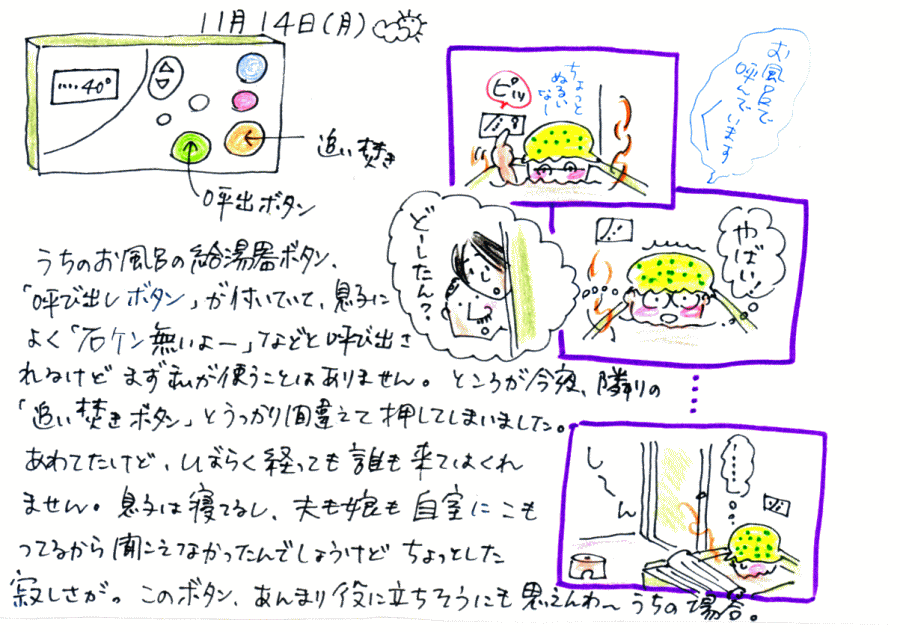 11月14日(月)
40°
追い焚き
呼出ボタン
ちょっと
ぬるい
なー
ピッ
お風呂で
呼んでいます
やばい!
どーしたん?
し〜ん
………
うちのお風呂の給湯器ボタン、
「呼び出しボタン」が付いていて、息子に
よく「石ケン無いよー」などと呼び出さ
れるけどまず私が使うことはありません。ところが今夜、隣りの
「追い焚きボタン」とうっかり間違えて押してしまいました。
あわてたけど、しばらく経っても誰も来てはくれ
ません。息子は寝てるし、夫も娘も自室にこも
ってるから聞こえなかったんでしょうけどちょっとした
寂しさが。このボタン、あんまり役に立ちそうにも思えんわ〜うちの場合。